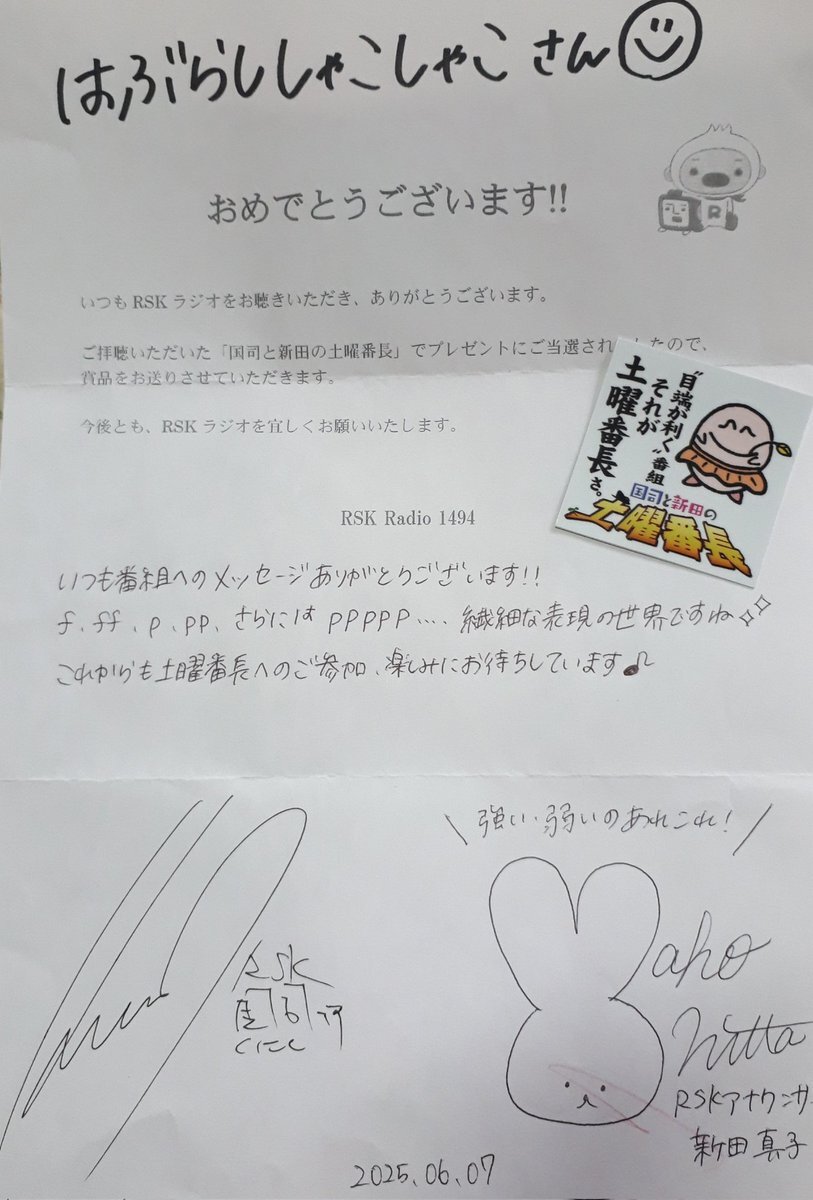 はぶらししゃこしゃこ さん
おめでとうございます!!
R
いつも RSK ラジオをお聴きいただき、ありがとうございます。
ご拝聴いただいた「国司と新田の土曜番長」でプレゼントにご当選され したので、
賞品をお送りさせていただきます。
今後とも、RSK ラジオを宜しくお願いいたします。
RSK Radio 1494
"目端が利く"番組
それが
土曜番長さ。
国司と新田の
土曜番長
いつも番組へのメッセージありがとうございます!!
f、ff、p、pp、さらには ppppp‥‥ 繊細な表現の世界ですね
これからも土曜番長へのご参加、楽しみにお待ちしています♪
\ 強い・弱いのあれこれ! /
RSK
くにし
Maho
Nitta
RSKアナウンサー
新田 真子
2025.06.07